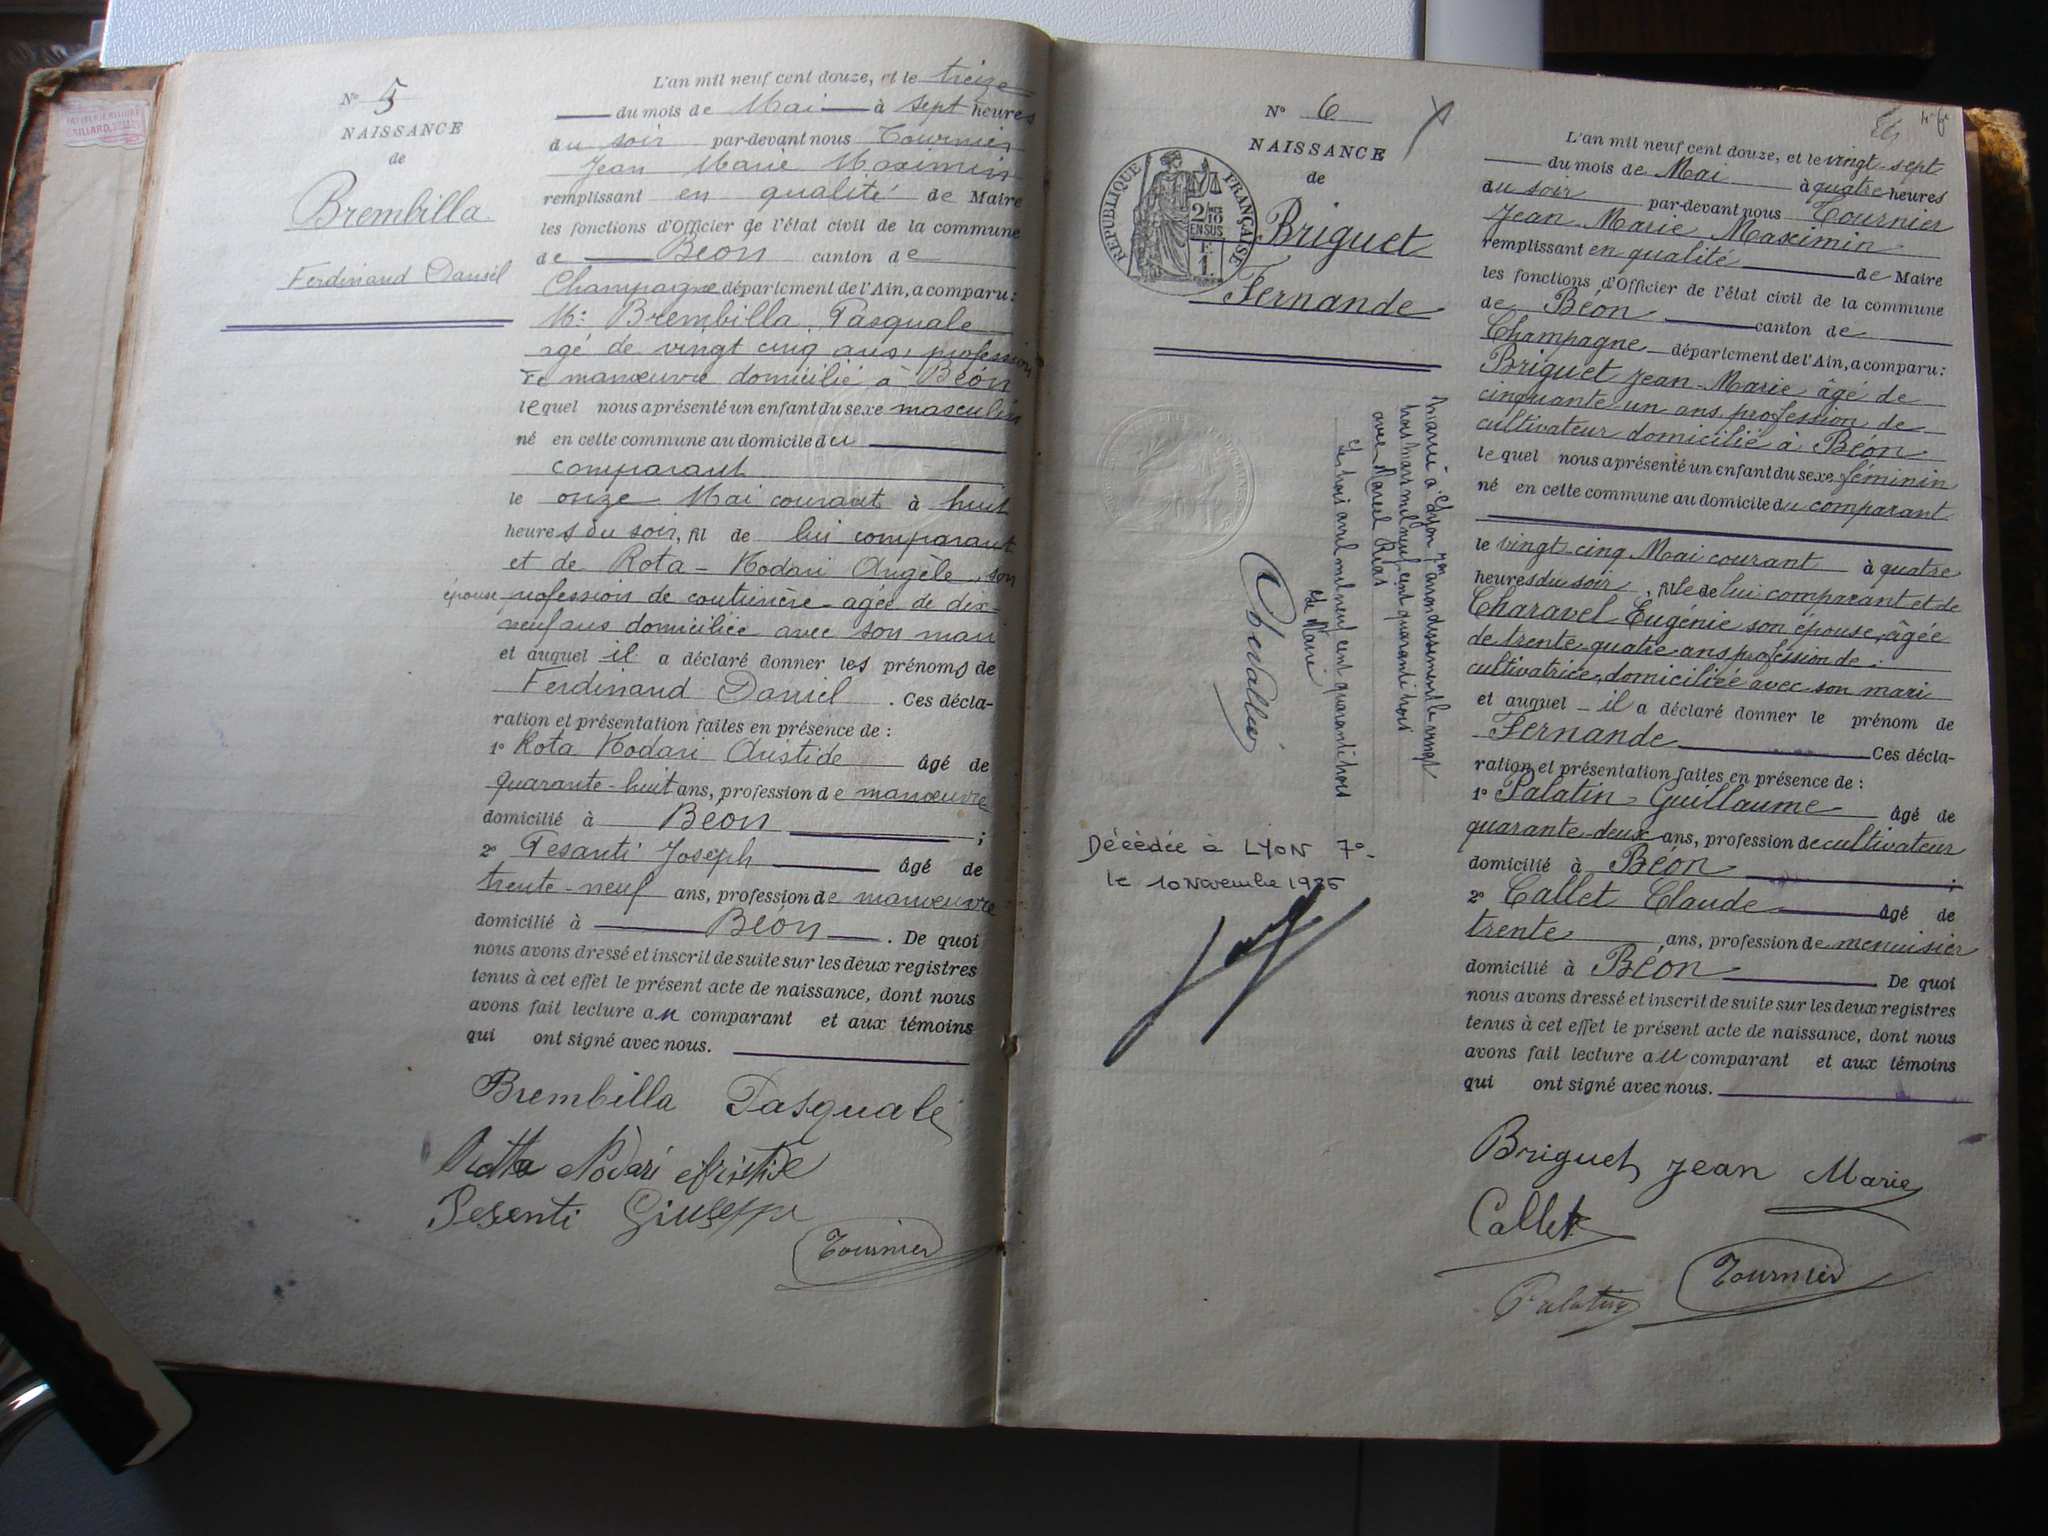 N° 5
NAISSANCE
de
Brembilla
Ferdinand Daniel
L'an mil neuf cent douze, et le treize
du mois de Mai à sept heures
du soir par-devant nous Tournier
Jean Marie Maximin
remplissant en qualité de Maire
les fonctions d'Officier de l'état civil de la commune
de Béon canton de
Champagne département de l'Ain, a comparu :
Mr Brembilla Pasquale
agé de vingt cinq ans, profession
de manœuvre domicilié à Béon
lequel nous a présenté un enfant du sexe masculin
né en cette commune au domicile du
comparant
le onze Mai courant à huit
heures du soir, fil de lui comparant
et de Rota-Nodari Angèle, son
épouse profession de couturière agée de dix-
neuf ans domiciliée avec son mari
et auquel il a déclaré donner les prénoms de
Ferdinand Daniel. Ces décla-
ration et présentation faites en présence de :
1° Rota Nodari Aristide âgé de
quarante-huit ans, profession de manœuvre
domicilié à Béon ;
2° Pesanti Joseph âgé de
trente-neuf ans, profession de manœuvre
domicilié à Béon. De quoi
nous avons dressé et inscrit de suite sur les deux registres
tenus à cet effet le présent acte de naissance, dont nous
avons fait lecture au comparant et aux témoins
qui ont signé avec nous.
Brembilla Pasquale
Rotta Nodari Aristide
Pesenti Giuseppe
Tournier
N° 6
NAISSANCE
de
REPUBLIQUE FRANÇAISE
2/10
EN SUS
F.
1.
Briguet
Fernande
Marié à Lyon 7me arrondissement le vingt
trois mars mil neuf cent quarante trois
avec Marcel
Le trois avril mil neuf cent quarante trois
Le Maire
Décédée à LYON 7°
le 10 Novembre 1985
L'an mil neuf cent douze, et le vingt-sept
du mois de Mai à quatre heures
du soir par-devant nous Tournier
Jean Marie Maximin
remplissant en qualité de Maire
les fonctions d'Officier de l'état civil de la commune
de Béon canton de
Champagne département de l'Ain, a comparu :
Briguet Jean-Marie âgé de
cinquante un ans profession de
cultivateur domicilié à Béon
lequel nous a présenté un enfant du sexe féminin
né en cette commune au domicile du comparant
le vingt-cinq Mai courant à quatre
heures du soir, fille de lui comparant et de
Charavel Eugénie son épouse, âgée
de trente quatre ans profession de
cultivatrice, domiciliée avec son mari
et auquel il a déclaré donner le prénom de
Fernande Ces décla-
ration et présentation faites en présence de :
1° Palatin Guillaume âgé de
quarante deux ans, profession de cultivateur
domicilié à Béon ;
2° Callet Claude âgé de
trente ans, profession de menuisier
domicilié à Béon De quoi
nous avons dressé et inscrit de suite sur les deux registres
tenus à cet effet le présent acte de naissance, dont nous
avons fait lecture au comparant et aux témoins
qui ont signé avec nous.
Briguet Jean Marie
Callet
Tournier
Palatin